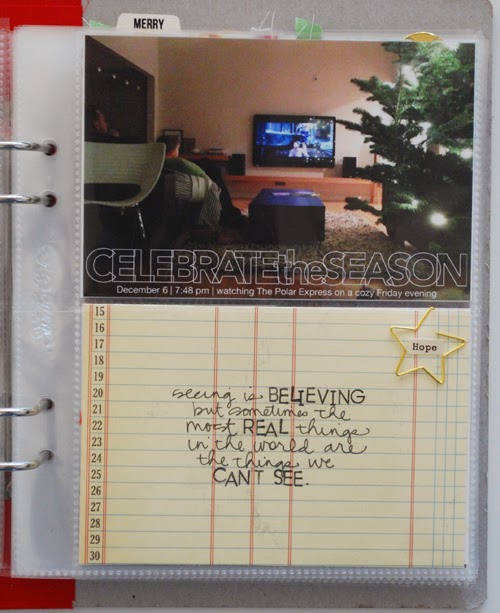 MERRY
CELEBRATEtheSEASON
December 6 | 7:48 pm | watching The Polar Express on a cozy Friday evening
15
16
17
18
19
20
21
22
23
24
25
26
27
28
29
30
Hope
seeing is BELIEVING
but sometimes the
most REAL things
in the world are
the things we
CAN'T SEE.